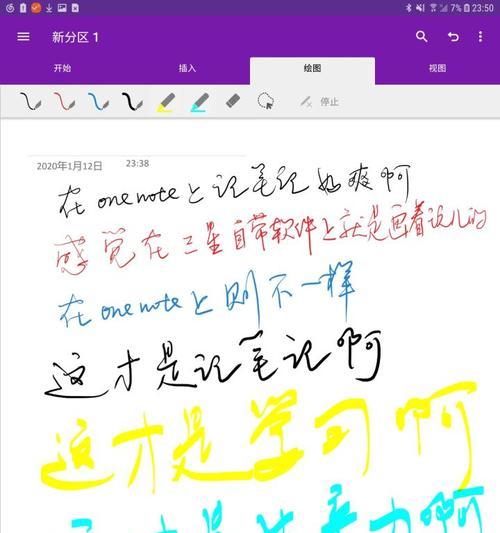 7% 23:50
新分区 1
开始 插入 绘图 视图
停止
2020年1月12日 23:38
在onenote上记笔记好爽啊
感觉在三星自带软件上就是画着玩儿的
在onenote上则不一样
这才是记笔记啊
这才是学习啊
这才是生产力啊